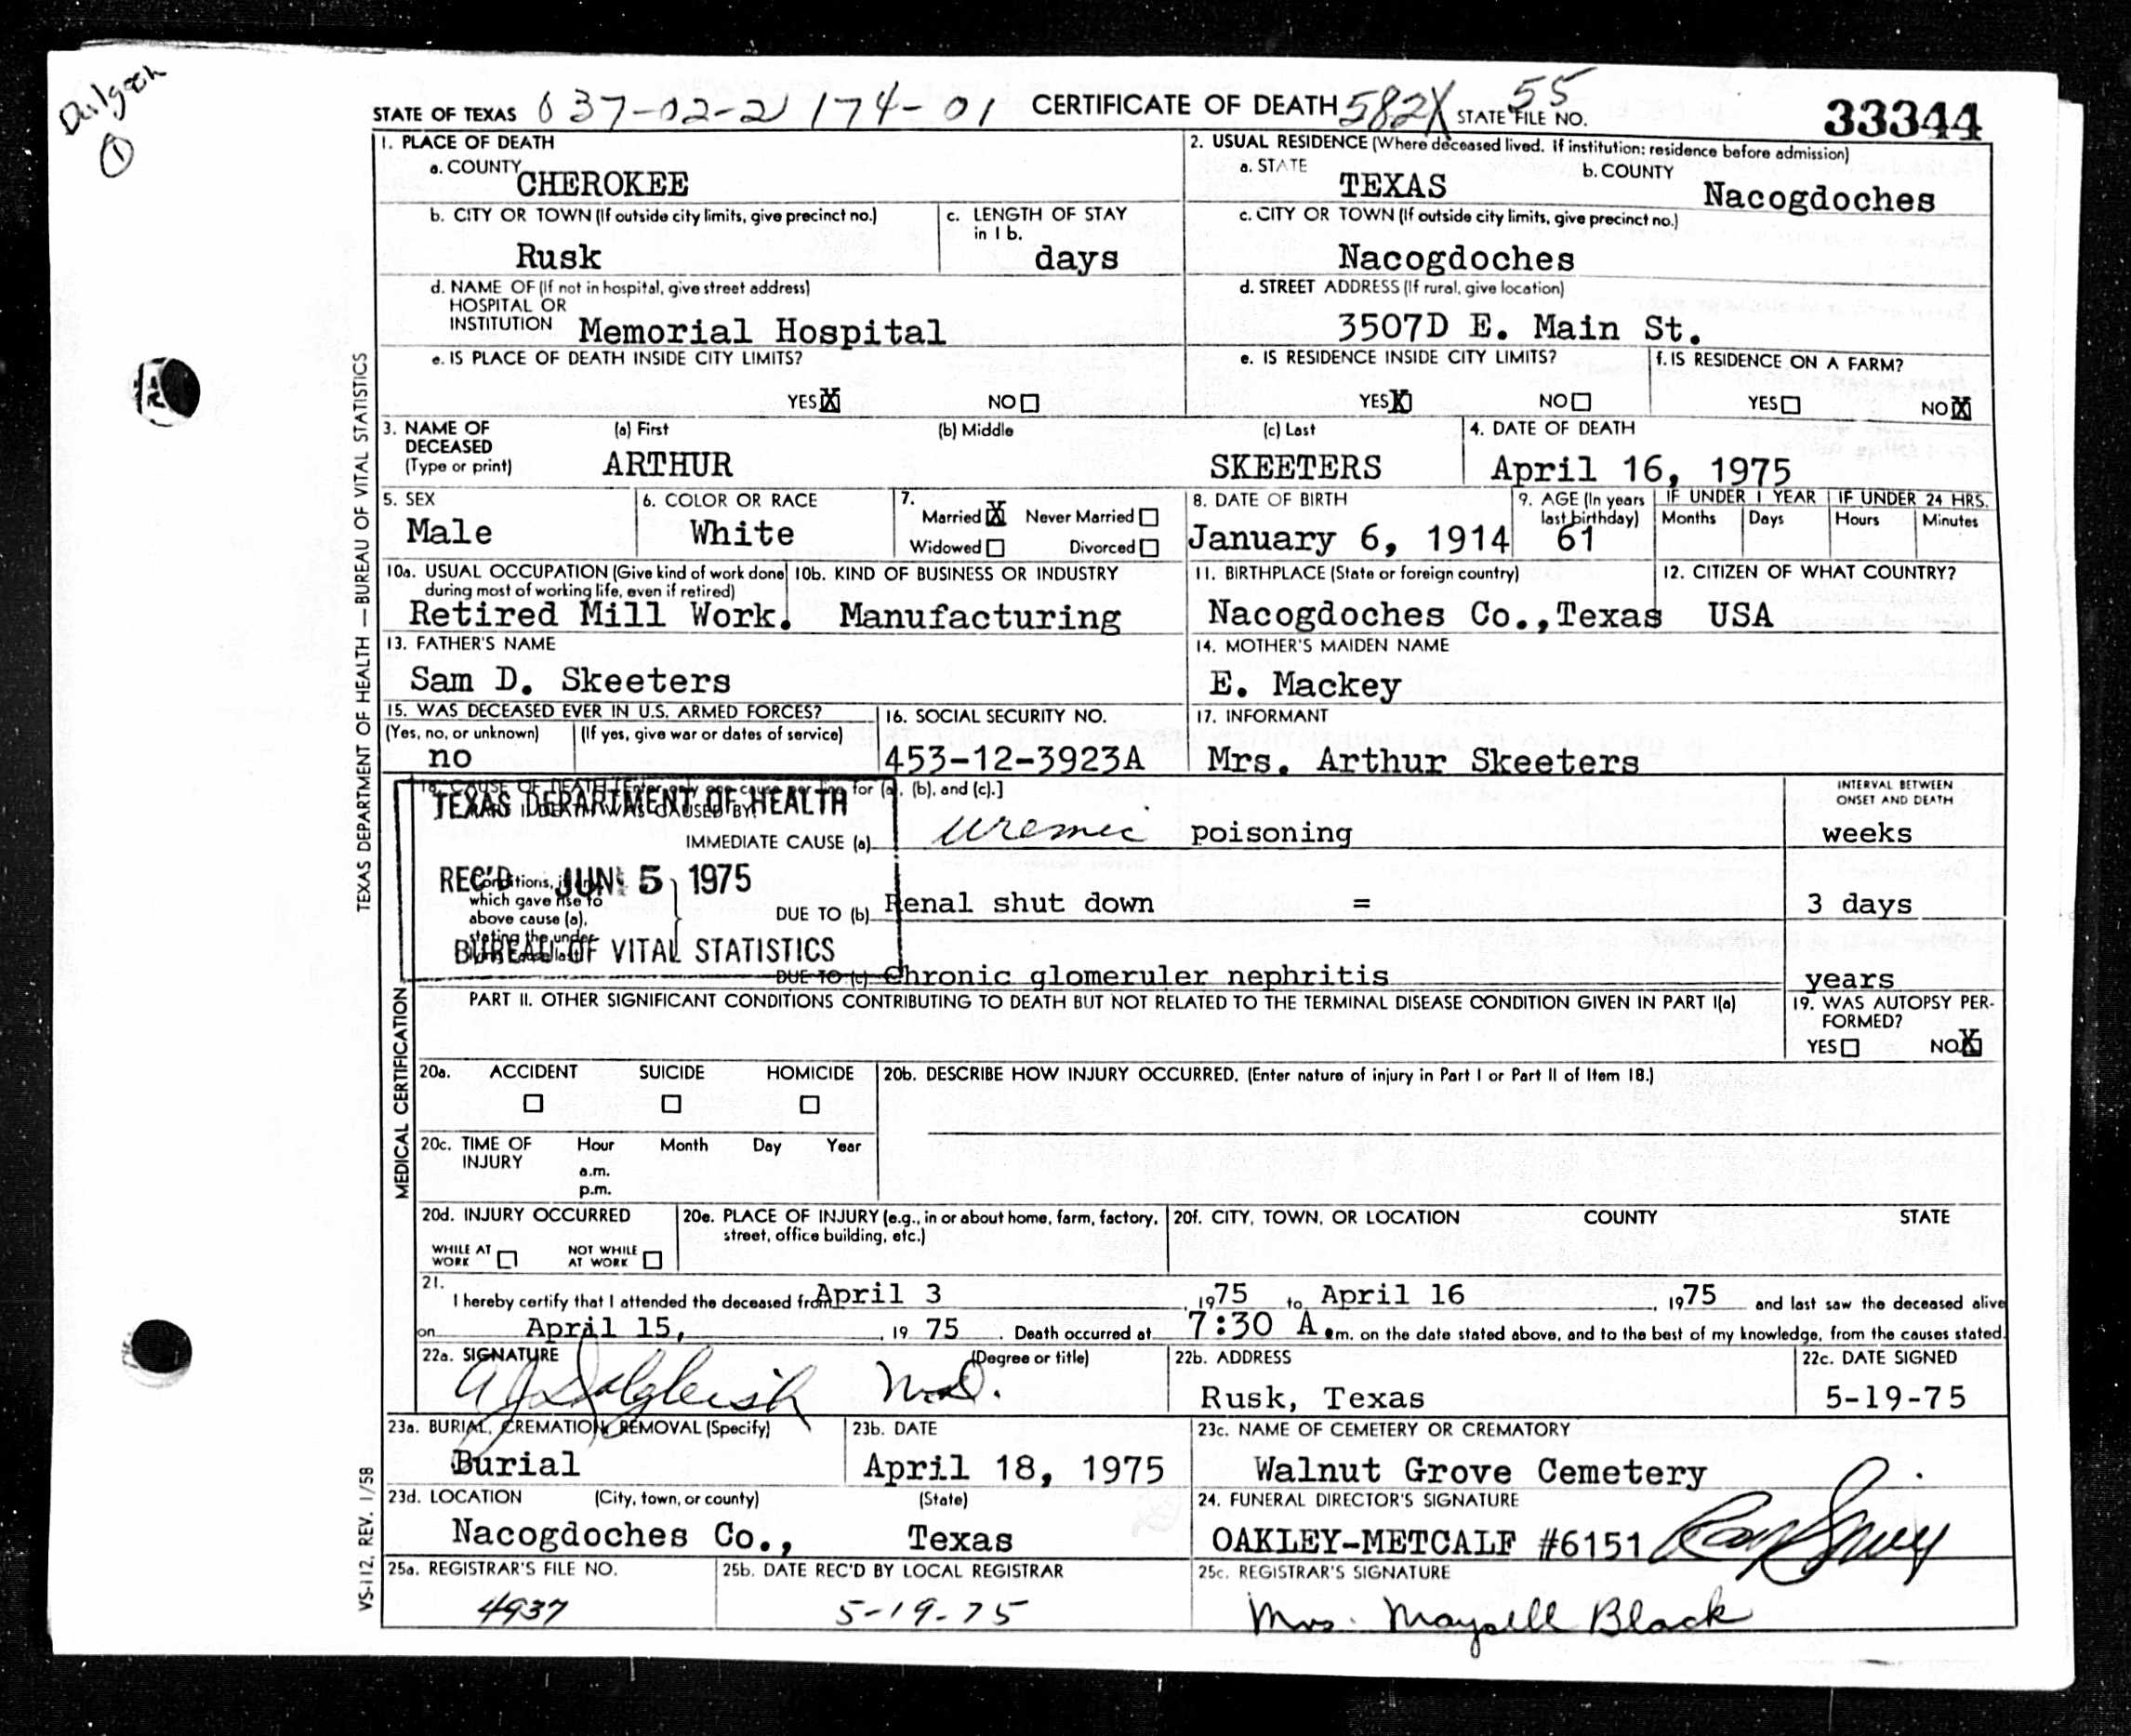 STATE OF TEXAS 037-02-21174-01 CERTIFICATE OF DEATH 582X STATE FILE NO. 55 33344
1. PLACE OF DEATH
a. COUNTY CHEROKEE
b. CITY OR TOWN (If outside city limits, give precinct no.) Rusk
c. LENGTH OF STAY in 1 b. days
d. NAME OF (If not in hospital, give street address)
HOSPITAL OR
INSTITUTION Memorial Hospital
e. IS PLACE OF DEATH INSIDE CITY LIMITS?
YES X NO
2. USUAL RESIDENCE (Where deceased lived. If institution: residence before admission)
a. STATE TEXAS b. COUNTY Nacogdoches
c. CITY OR TOWN (If outside city limits, give precinct no.)
Nacogdoches
d. STREET ADDRESS (If rural, give location)
3507D E. Main St.
e. IS RESIDENCE INSIDE CITY LIMITS?
YES X NO
f. IS RESIDENCE ON A FARM?
YES NO X
3. NAME OF DECEASED (Type or print)
(a) First (b) Middle (c) Last
ARTHUR SKEETERS
4. DATE OF DEATH
April 16, 1975
5. SEX
Male
6. COLOR OR RACE
White
7.
Married X Never Married
Widowed Divorced
8. DATE OF BIRTH
January 6, 1914
9. AGE (In years last birthday)
61
IF UNDER 1 YEAR IF UNDER 24 HRS.
Months Days Hours Minutes
10a. USUAL OCCUPATION (Give kind of work done
during most of working life, even if retired)
Retired Mill Work.
10b. KIND OF BUSINESS OR INDUSTRY
Manufacturing
11. BIRTHPLACE (State or foreign country)
Nacogdoches Co.,Texas
12. CITIZEN OF WHAT COUNTRY?
USA
13. FATHER'S NAME
Sam D. Skeeters
14. MOTHER'S MAIDEN NAME
E. Mackey
15. WAS DECEASED EVER IN U.S. ARMED FORCES?
(Yes, no, or unknown) (If yes, give war or dates of service)
no
16. SOCIAL SECURITY NO.
453-12-3923A
17. INFORMANT
Mrs. Arthur Skeeters
18. CAUSE OF DEATH [Enter only one cause per line for (a), (b), and (c).]
TEXAS DEPARTMENT OF HEALTH
REC'D JUN 5 1975
BUREAU OF VITAL STATISTICS
INTERVAL BETWEEN
ONSET AND DEATH
IMMEDIATE CAUSE (a) uremic poisoning weeks
which gave rise to
above cause (a),
stating the under-
DUE TO (b) Renal shut down = 3 days
DUE TO (c) Chronic glomeruler nephritis years
PART II. OTHER SIGNIFICANT CONDITIONS CONTRIBUTING TO DEATH BUT NOT RELATED TO THE TERMINAL DISEASE CONDITION GIVEN IN PART I(a)
19. WAS AUTOPSY PER-
FORMED?
YES NO X
20a. ACCIDENT SUICIDE HOMICIDE
20b. DESCRIBE HOW INJURY OCCURRED. (Enter nature of injury in Part I or Part II of Item 18.)
20c. TIME OF INJURY Hour Month Day Year
a.m.
p.m.
20d. INJURY OCCURRED
WHILE AT WORK NOT WHILE AT WORK
20e. PLACE OF INJURY (e.g., in or about home, farm, factory,
street, office building, etc.)
20f. CITY, TOWN, OR LOCATION COUNTY STATE
21.
I hereby certify that I attended the deceased from April 3, 1975 to April 16, 1975 and last saw the deceased alive
on April 15, 19 75. Death occurred at 7:30 A.m. on the date stated above, and to the best of my knowledge, from the causes stated.
22a. SIGNATURE (Degree or title)
A J Dalgleish M.D.
22b. ADDRESS
Rusk, Texas
22c. DATE SIGNED
5-19-75
23a. BURIAL, CREMATION, REMOVAL (Specify)
Burial
23b. DATE
April 18, 1975
23c. NAME OF CEMETERY OR CREMATORY
Walnut Grove Cemetery
23d. LOCATION (City, town, or county) (State)
Nacogdoches Co., Texas
24. FUNERAL DIRECTOR'S SIGNATURE
OAKLEY-METCALF #6151
25a. REGISTRAR'S FILE NO.
4937
25b. DATE REC'D BY LOCAL REGISTRAR
5-19-75
25c. REGISTRAR'S SIGNATURE
Mrs. Maydell Black
TEXAS DEPARTMENT OF HEALTH — BUREAU OF VITAL STATISTICS
MEDICAL CERTIFICATION
VS-112, REV. 1/58